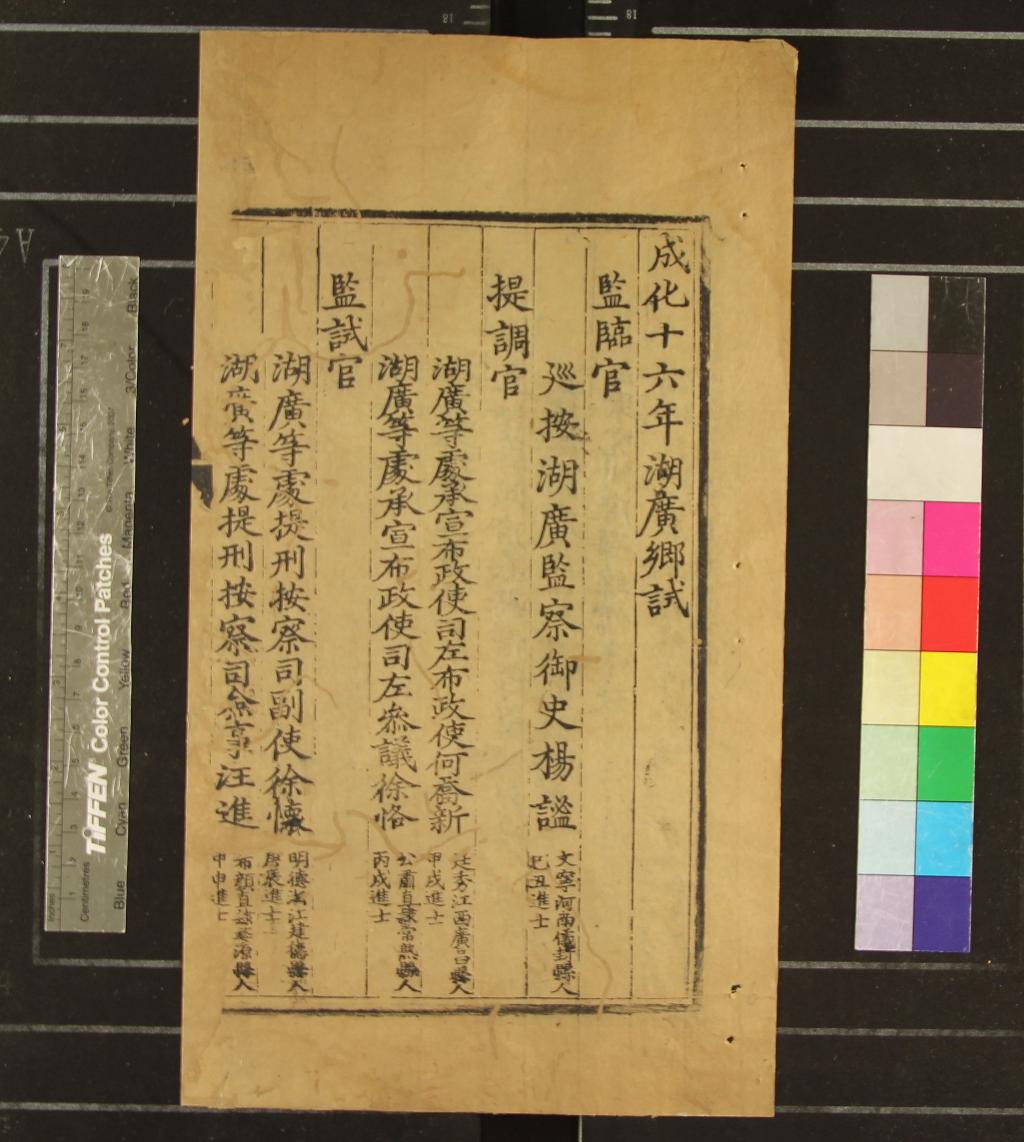 成化十六年湖廣鄉試
監臨官
廵按湖廣監察御史楊謐
文寧河南儀封縣人
己丑進士
提調官
湖廣等處承宣布政使司左布政使何喬新
廷秀江西廣昌縣人
甲戌進士
湖廣等處承宣布政使司左叅議徐恪
公肅直隸常熟縣人
丙戌進士
監試官
湖廣等處提刑按察司副使徐懷
明德浙江建德縣人
庚辰進士
湖廣等處提刑按察司僉事汪進
希顏直隸婺源縣人
甲申進士
TIFFEN Color Control Patches
Blue
Cyan
Green
Yellow
Red
Magenta
White
3/Color
Black
Inches
Centimetres
A4
18
18